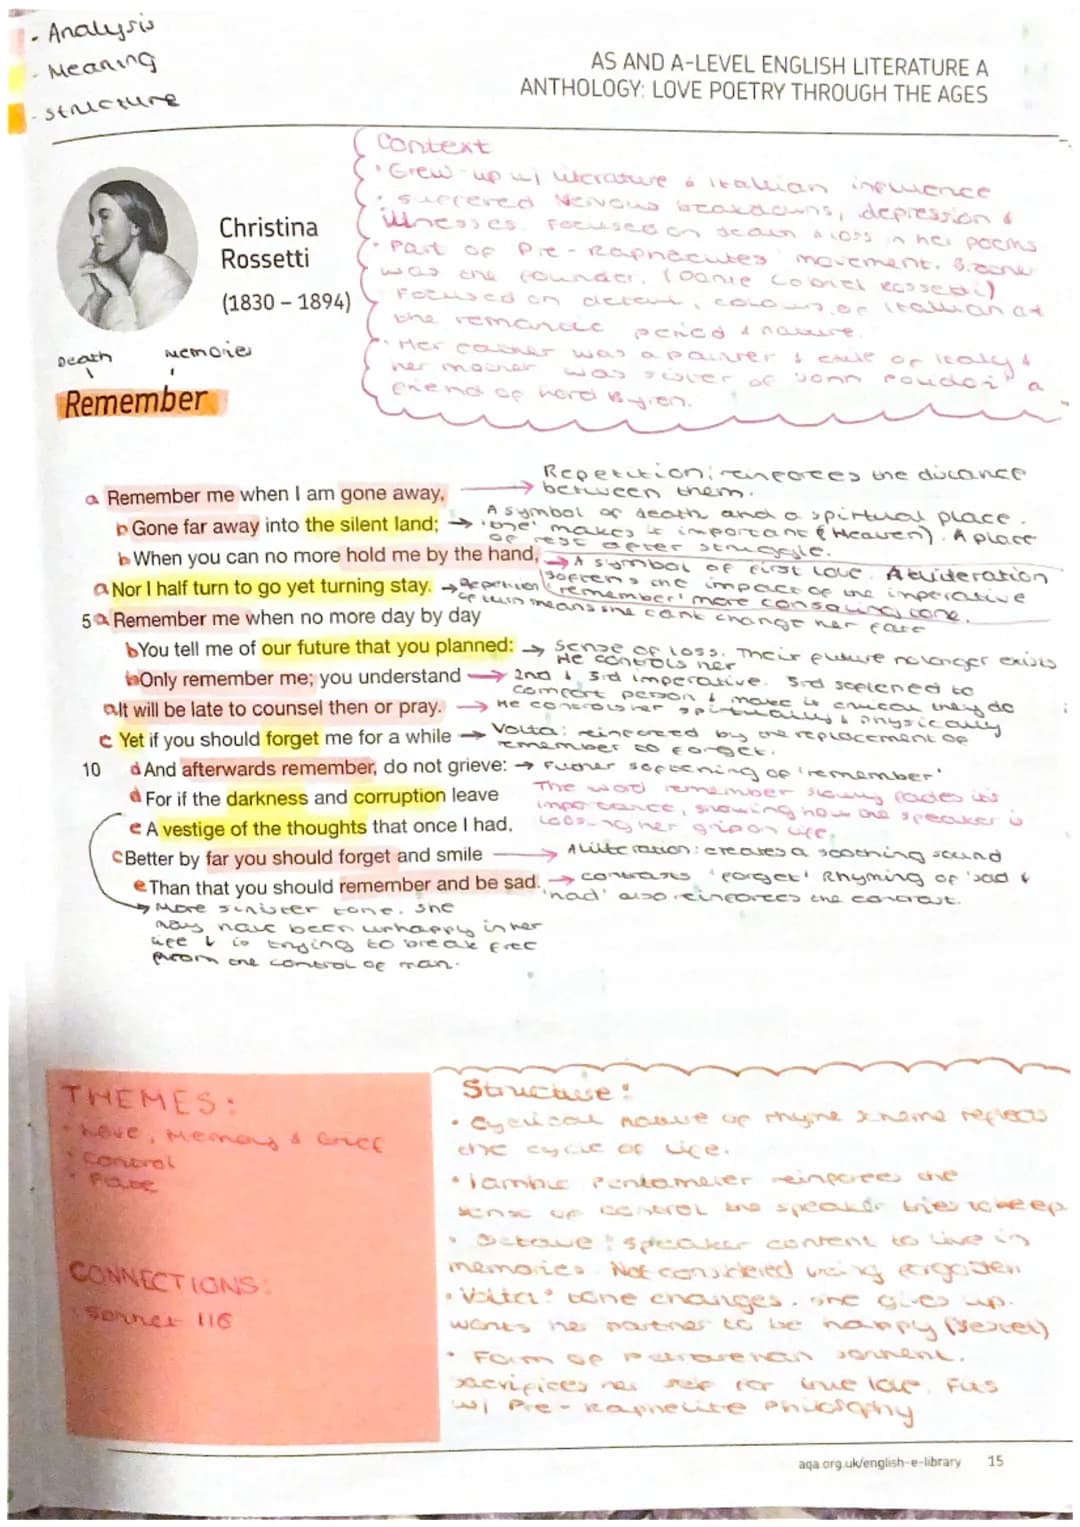 - Analysis
- Meaning
- structure
AS AND A-LEVEL ENGLISH LITERATURE A
ANTHOLOGY: LOVE POETRY THROUGH THE AGES
Context
• Grew-up w/ literature & itallian influence
• suffered nervous breakdowns, depression &
illnesses. Focused on death & loss in her poems
• Part of Pre-Raphaelites movement. Brother
was the founder.
Focused on detail, colours of itallian art
the romantic period & nature.
• Her father was a painter & exile of Italy &
her mother was sister of a
friend of Lord Byron.
Christina
Rossetti
(1830 – 1894)
Death
Memories
Remember
a Remember me when I am gone away,
Repetition; reinforces the distance
between them.
b Gone far away into the silent land;
A symbol of death and a spirtual place.
'the' makes it important (Heaven). A place
of rest after struggle.
b When you can no more hold me by the hand,
A symbol of first love.
softens the impact of the imperative
'remember' more consoling tone.
a Nor I half turn to go yet turning stay.
repetition
of turn means she cant change her fate
5 a Remember me when no more day by day
b You tell me of our future that you planned:
sense of loss. Their future nolonger exists
He controls her
b Only remember me; you understand
2nd & 3rd imperative. 3rd softened to
comfort person & make it crucial they do
a It will be late to counsel then or pray.
He controls her spiritually & physically
c Yet if you should forget me for a while
Volta: reinforced by the replacement of
remember to forget.
10 d And afterwards remember, do not grieve:
Futher softening of 'remember'
d For if the darkness and corruption leave
The word remember slowly fades its
importance, showing how the speaker is
loosing her grip on life.
e A vestige of the thoughts that once I had,
c Better by far you should forget and smile
Alliteration: creates a soothing sound
e Than that you should remember and be sad.
contrasts 'forget' Rhyming of 'sad &
'had' also reinforces the contrast.
More sinister tone. She
may have been unhappy in her
life & is trying to break free
from the control of man.
THEMES:
• Love, Memory & Grief
• Control
• Fate
CONNECTIONS:
• Sonnet 116
Structure:
• Cyclical nature of rhyme scheme reflects
the cycle of life.
• Iambic Pentameter reinforces the
sense of control the speaker tries to keep
• Octave: speaker content to live in
memories. Not considered being forgotten
• Volta: tone changes. She gives up.
wants her partner to be happy (Sestet)
• Form of Petrarchan sonnent.
sacrifices her self for true love. Fits
w/ Pre-Raphelite Philosphy
aqa.org.uk/english-e-library 15